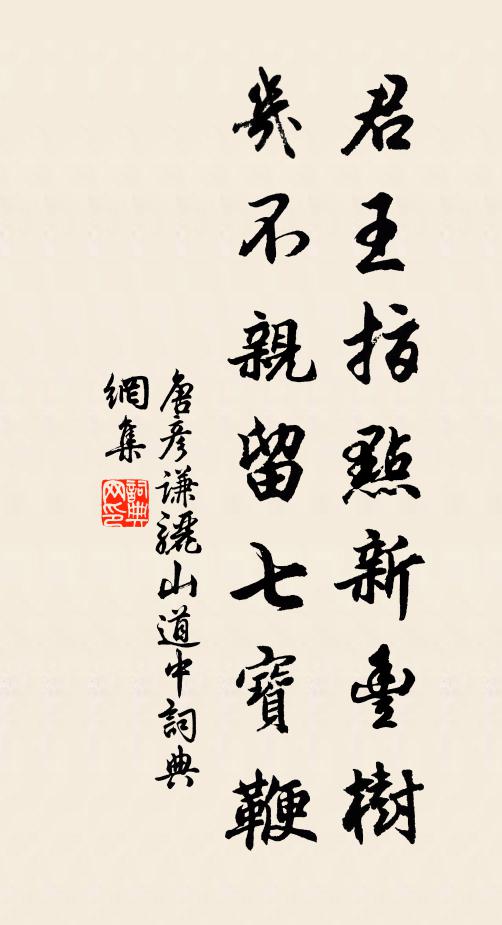 君王指點新豐樹
幾不親留七寶鞭
唐彥謙驪山道中詞典
網集
詞典網印